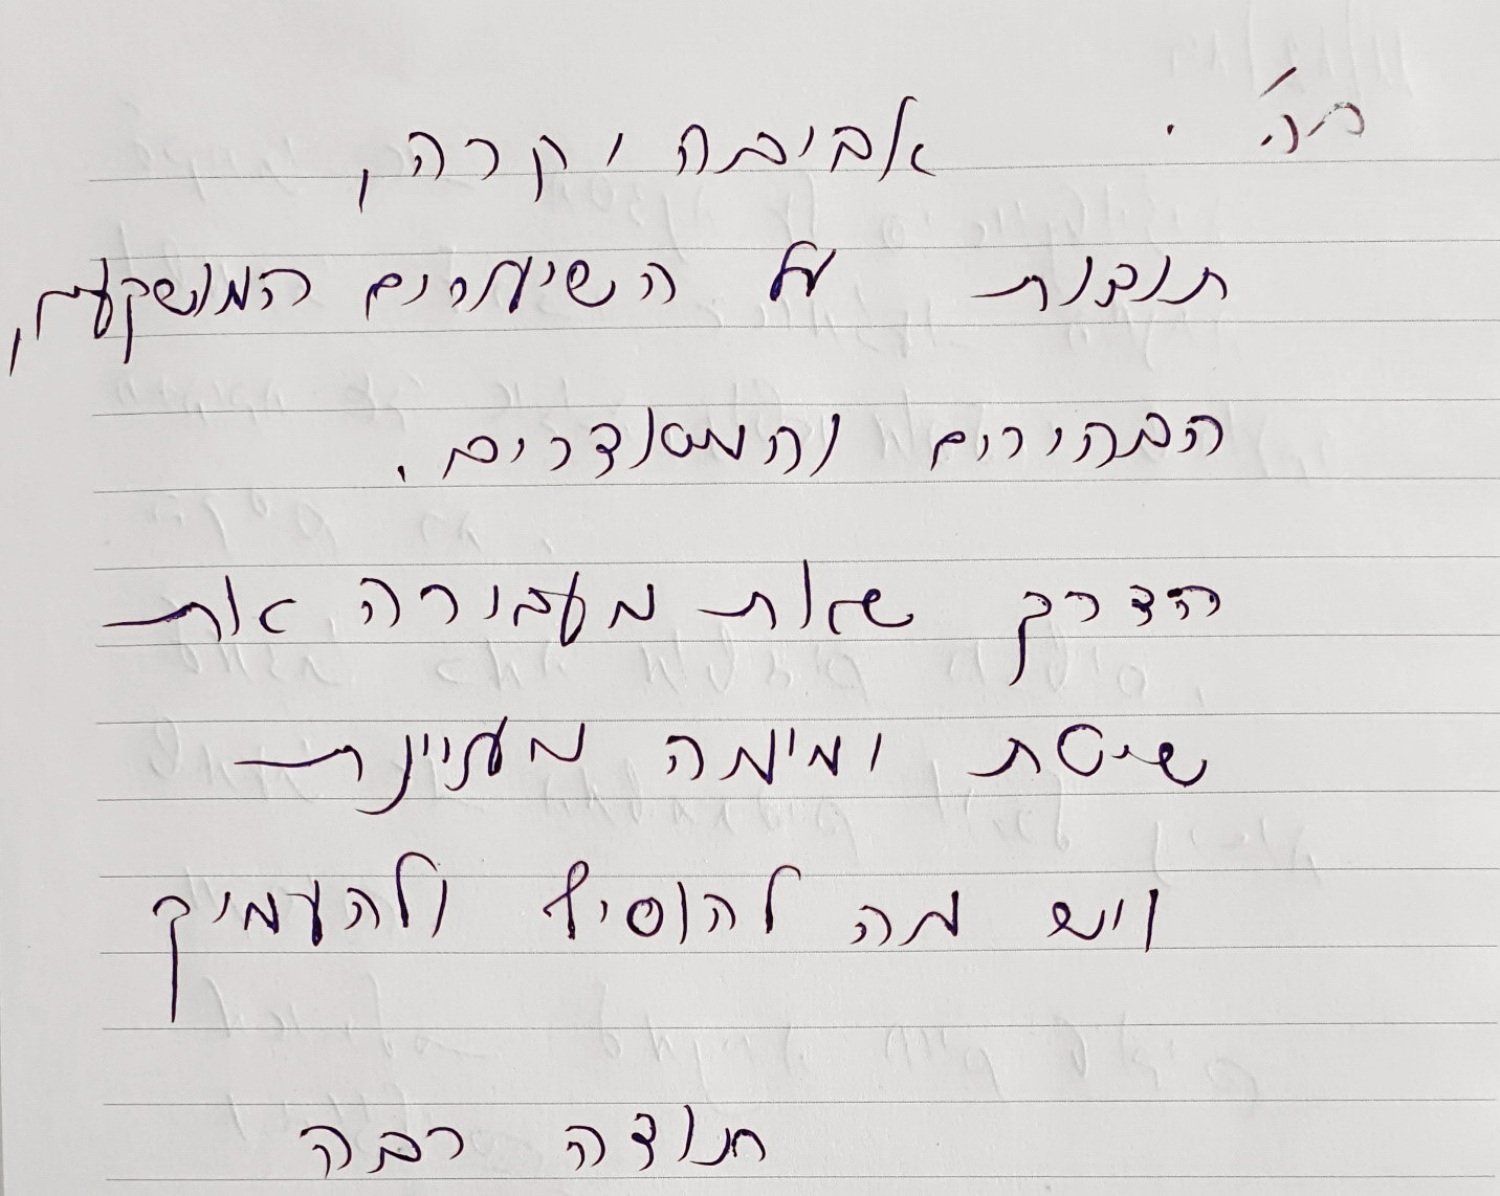 ב"ה. אביבה יקרה,
תובנות על השיעורים המושקעים,
הבהירים והמסודרים.
הדרך שאת מעבירה את
שיטת ימימה מעניינת
ויש מה להוסיף ולהעמיק
תודה רבה